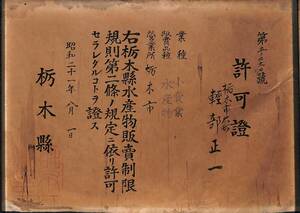 許可證
栃木市
輕部正一
業種 小賣業
販賣品種 水産物
營業所 栃木市
右栃木縣水産物販賣制限
規則第二條ノ規定ニ依リ許可
セラレタルコトヲ證ス
昭和二十一年八月一日
栃木縣